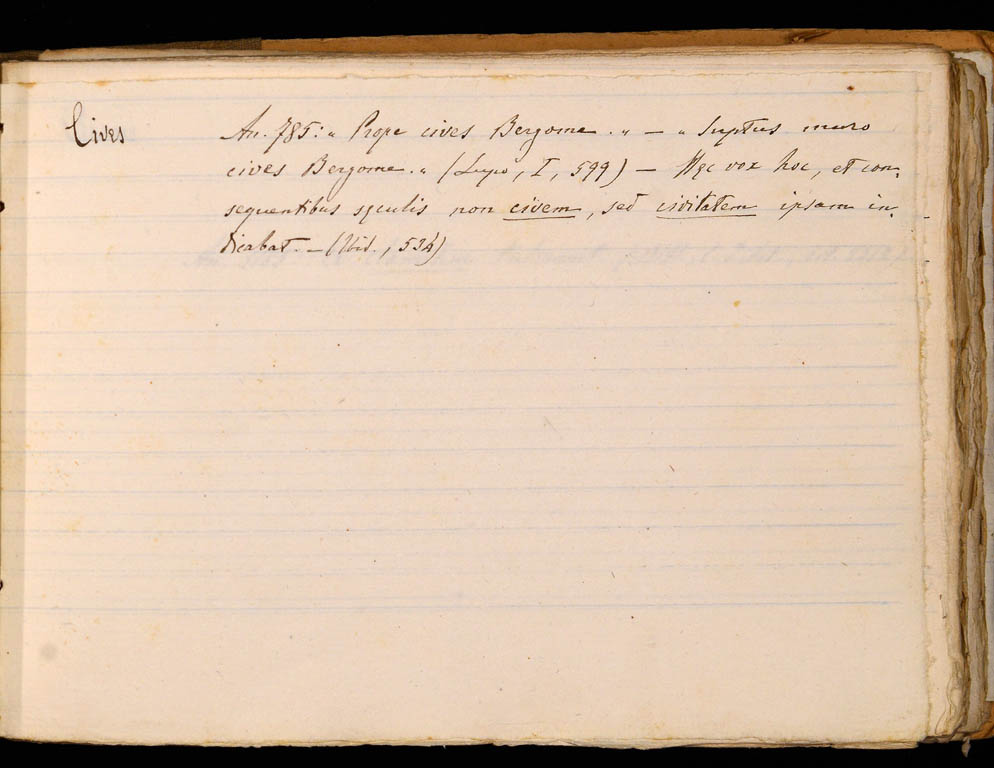 Cives An. 785: „ Prope cives Bergome „ — „ Suptus muro
cives Bergome „ (Lupo, I, 599) — Hęc vox hoc, et con-
sequentibus sęculis non civem, sed civitatem ipsam in-
dicabat. — (Ibid., 534)